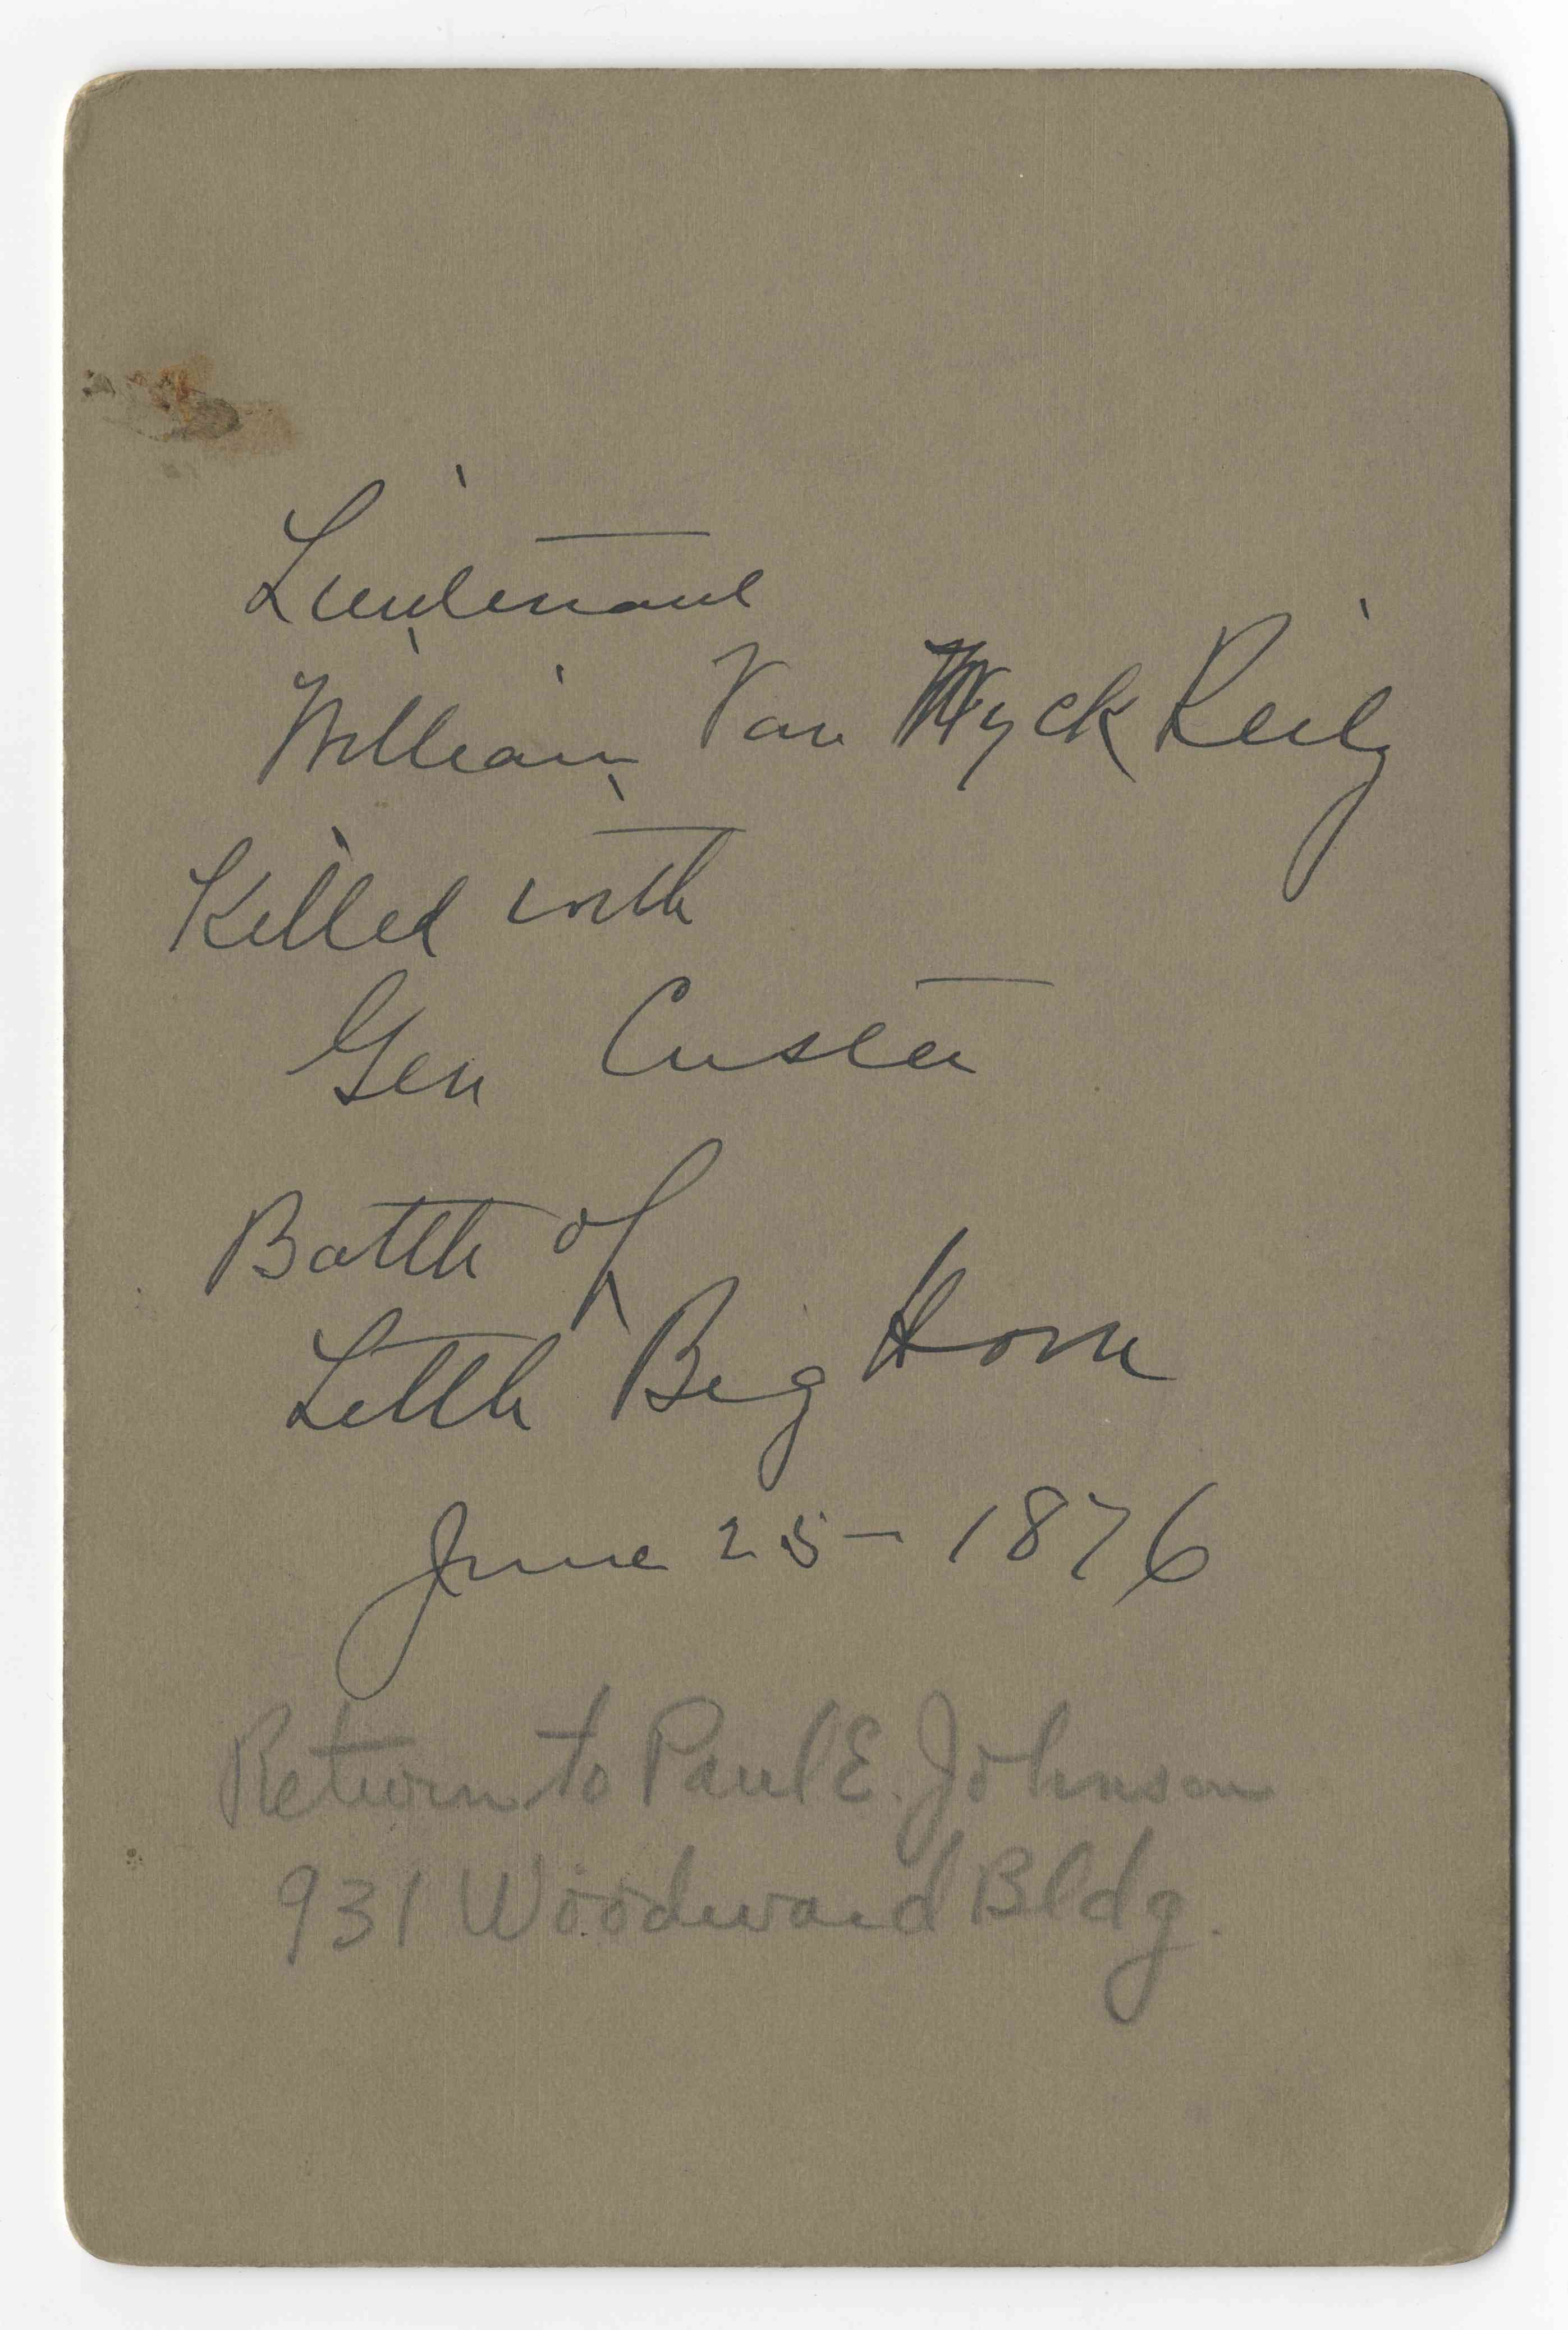 Lieutenant
William Van Wyck Reily
Killed with
Gen Custer
Battle of
Little Big Horn
June 25 - 1876
Return to Paul E. Johnson
931 Woodward Bldg.